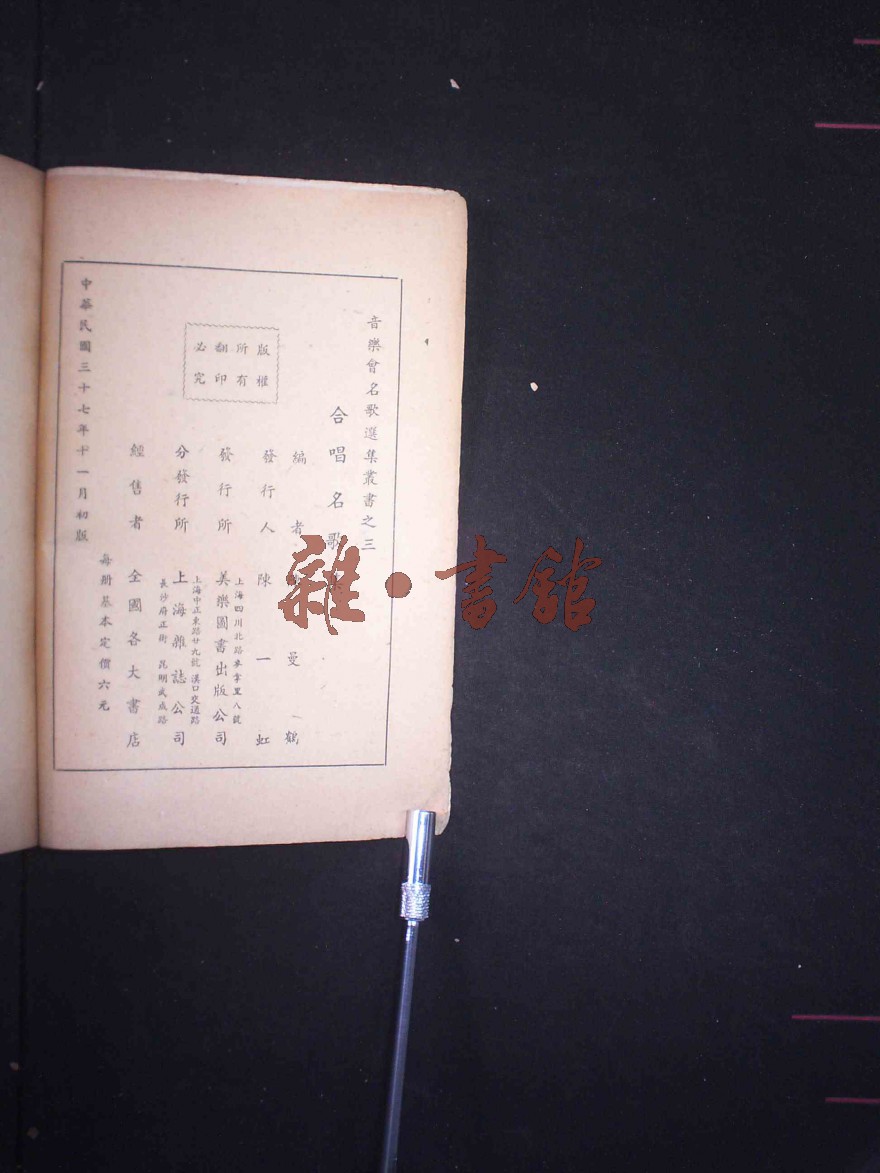 音樂會名歌選集叢書之三
合唱名歌
編者 曼鶴
發行人 陳一虹
上海四川北路 里八號
發行所 美樂圖書出版公司
上海中正東路廿九號 漢口交通路
分發行所 上海雜誌公司
長沙府正街 昆明武成路
經售者 全國各大書店
每册基本定價六元
中華民國三十七年十一月初版
版權
所有
翻印
必究
雜·書館